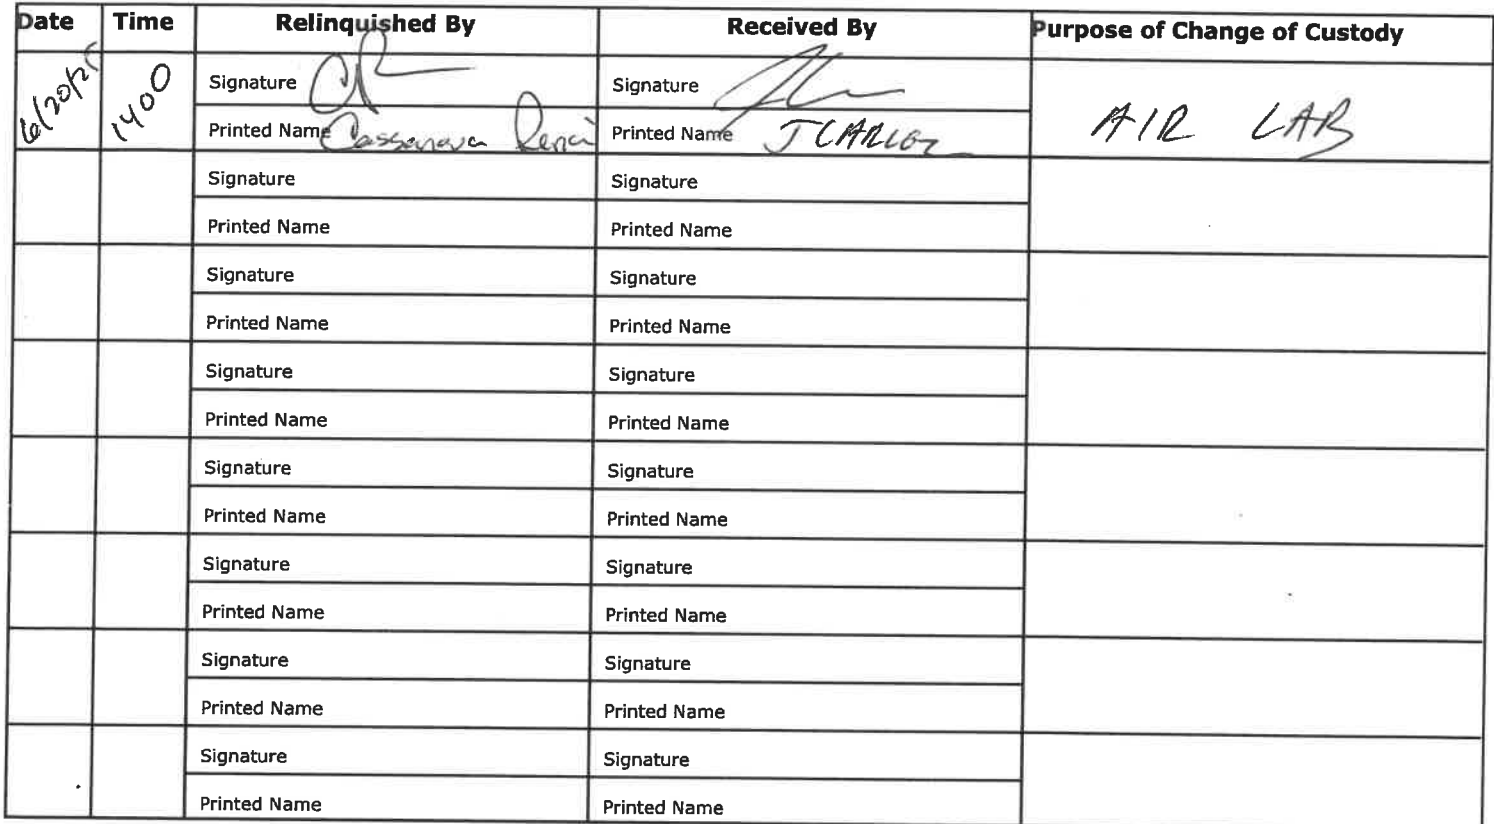 Date Time Relinquished By Received By Purpose of Change of Custody
6/20/25 1400 Signature Signature AIR LAB
Printed Name Cassanova Printed Name J CARLOZ
Signature Signature
Printed Name Printed Name
Signature Signature
Printed Name Printed Name
Signature Signature
Printed Name Printed Name
Signature Signature
Printed Name Printed Name
Signature Signature
Printed Name Printed Name
Signature Signature
Printed Name Printed Name
Signature Signature
Printed Name Printed Name